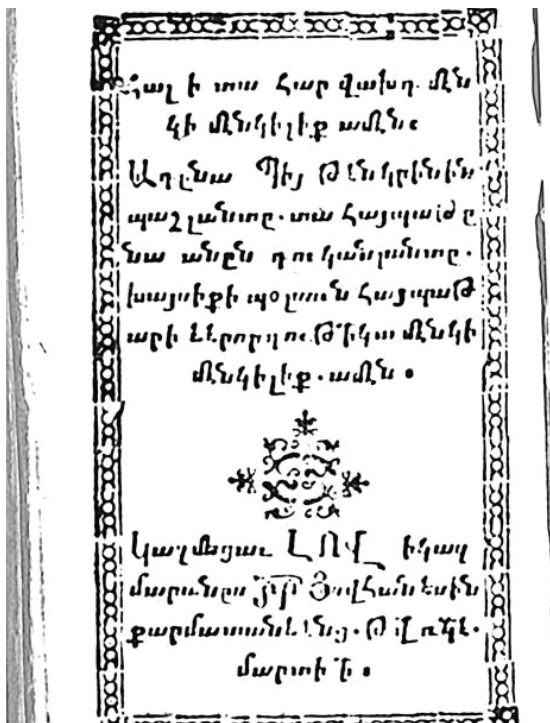 Հալ ի տա Հար վախդ. մէն
կի մէնկիլիք ամէն:
Ադընա Պիյ Թէնկրինին
պաշլանտը. տա Հայպաթ ը
նա անըն դուկանլանտը.
խայսիքի պօլսուն Հայպաթ
արի մէնկի
մէնկիլիք. ամէն.
Կազմեցաւ ԼՈՎ իկաղ
մարանըս ՏՐ Յովհանէսին
քարմատանենց. Թվ. ռկէ.
մարտի ի.